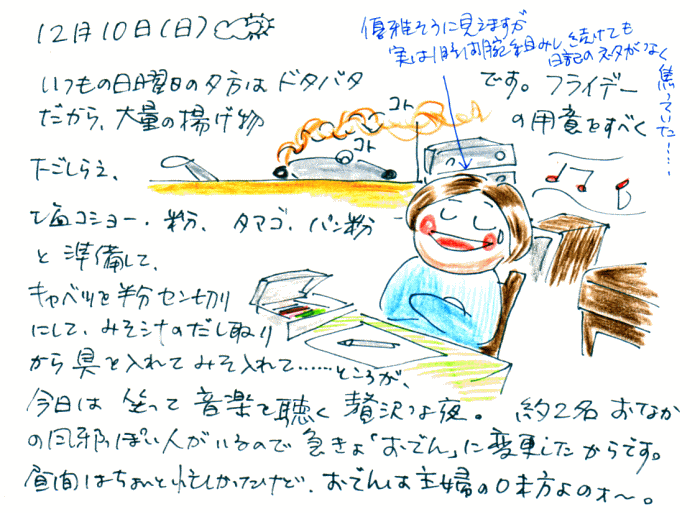 12月10日(日)
優雅そうに見えますが
実は1時間腕組みし続けても
日記のネタがなく
焦っていた!……
いつもの日曜日の夕方は ドタバタ です。フライデー
だから、大量の揚げ物 の用意をすべく
コト
コト
下ごしらえ、
塩コショー、粉、タマゴ、パン粉
と準備して、
キャベツを半分センせん切り
にして、みそ汁のだし取り
から具を入れてみそ入れて……ところが、
今日は 坐って 音楽を聴く 贅沢な夜。 約2名 おなか
の風邪っぽい人がいるので急きょ「おでん」に変更したからです。
昼間はちょいと忙しかったけど、おでんは主婦の味方よのォ〜。